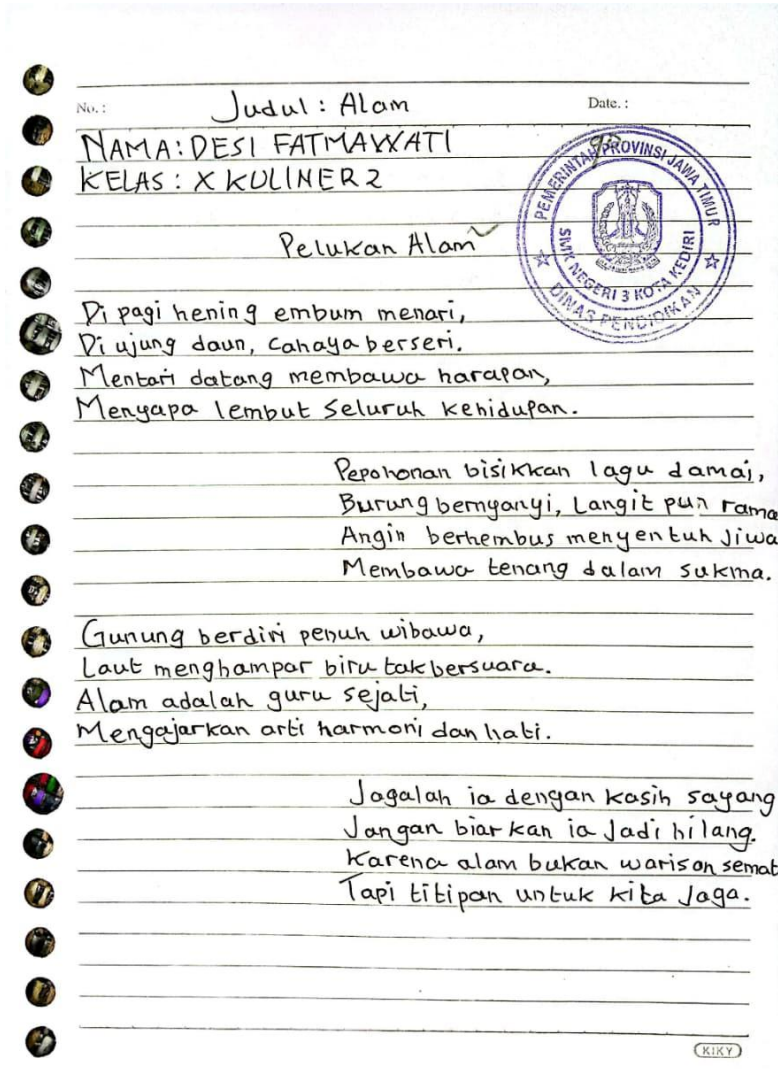 No. :
Judul : Alam
Date. :
NAMA : DESI FATMAWATI
KELAS : X KULINER 2
PEMERINTAH PROVINSI JAWA TIMUR
SMK NEGERI 3 KOTA KEDIRI
DINAS PENDIDIKAN
Pelukan Alam
Di pagi hening embum menari,
Di ujung daun, Cahaya berseri.
Mentari datang membawa harapan,
Menyapa lembut Seluruh kehidupan.
Pepohonan bisikkan lagu damai,
Burung bernyanyi, Langit pun rama
Angin berhembus menyentuh Jiwa
Membawa tenang dalam sukma.
Gunung berdiri penuh wibawa,
Laut menghampar biru tak bersuara.
Alam adalah guru sejati,
Mengajarkan arti harmoni dan hati.
Jagalah ia dengan kasih sayang
Jangan biarkan ia Jadi hilang.
Karena alam bukan warisan semat
Tapi titipan untuk kita Jaga.
KIKY